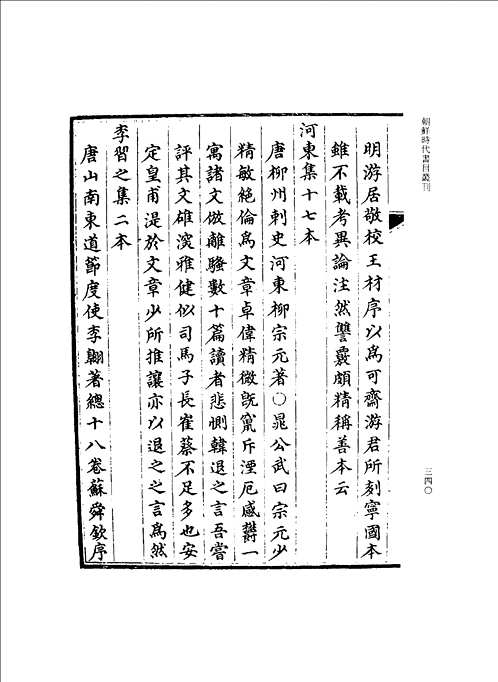 朝鮮時代書目叢刊
三四〇
明游居敬校王材序以爲可齋游君所刻寧國本
雖不載考異論注然讐覈頗精稱善本云
河東集十七本
唐柳州刺史河東柳宗元著○晁公武曰宗元少
精敏絶倫爲文章卓偉精微旣竄斥湮厄感欝一
寓諸文倣離騷數十篇讀者悲惻韓退之言吾嘗
評其文雄深雅健似司馬子長崔蔡不足多也安
定皇甫湜於文章少所推讓亦以退之之言爲然
李習之集二本
唐山南東道節度使李翶著總十八卷蘇舜欽序